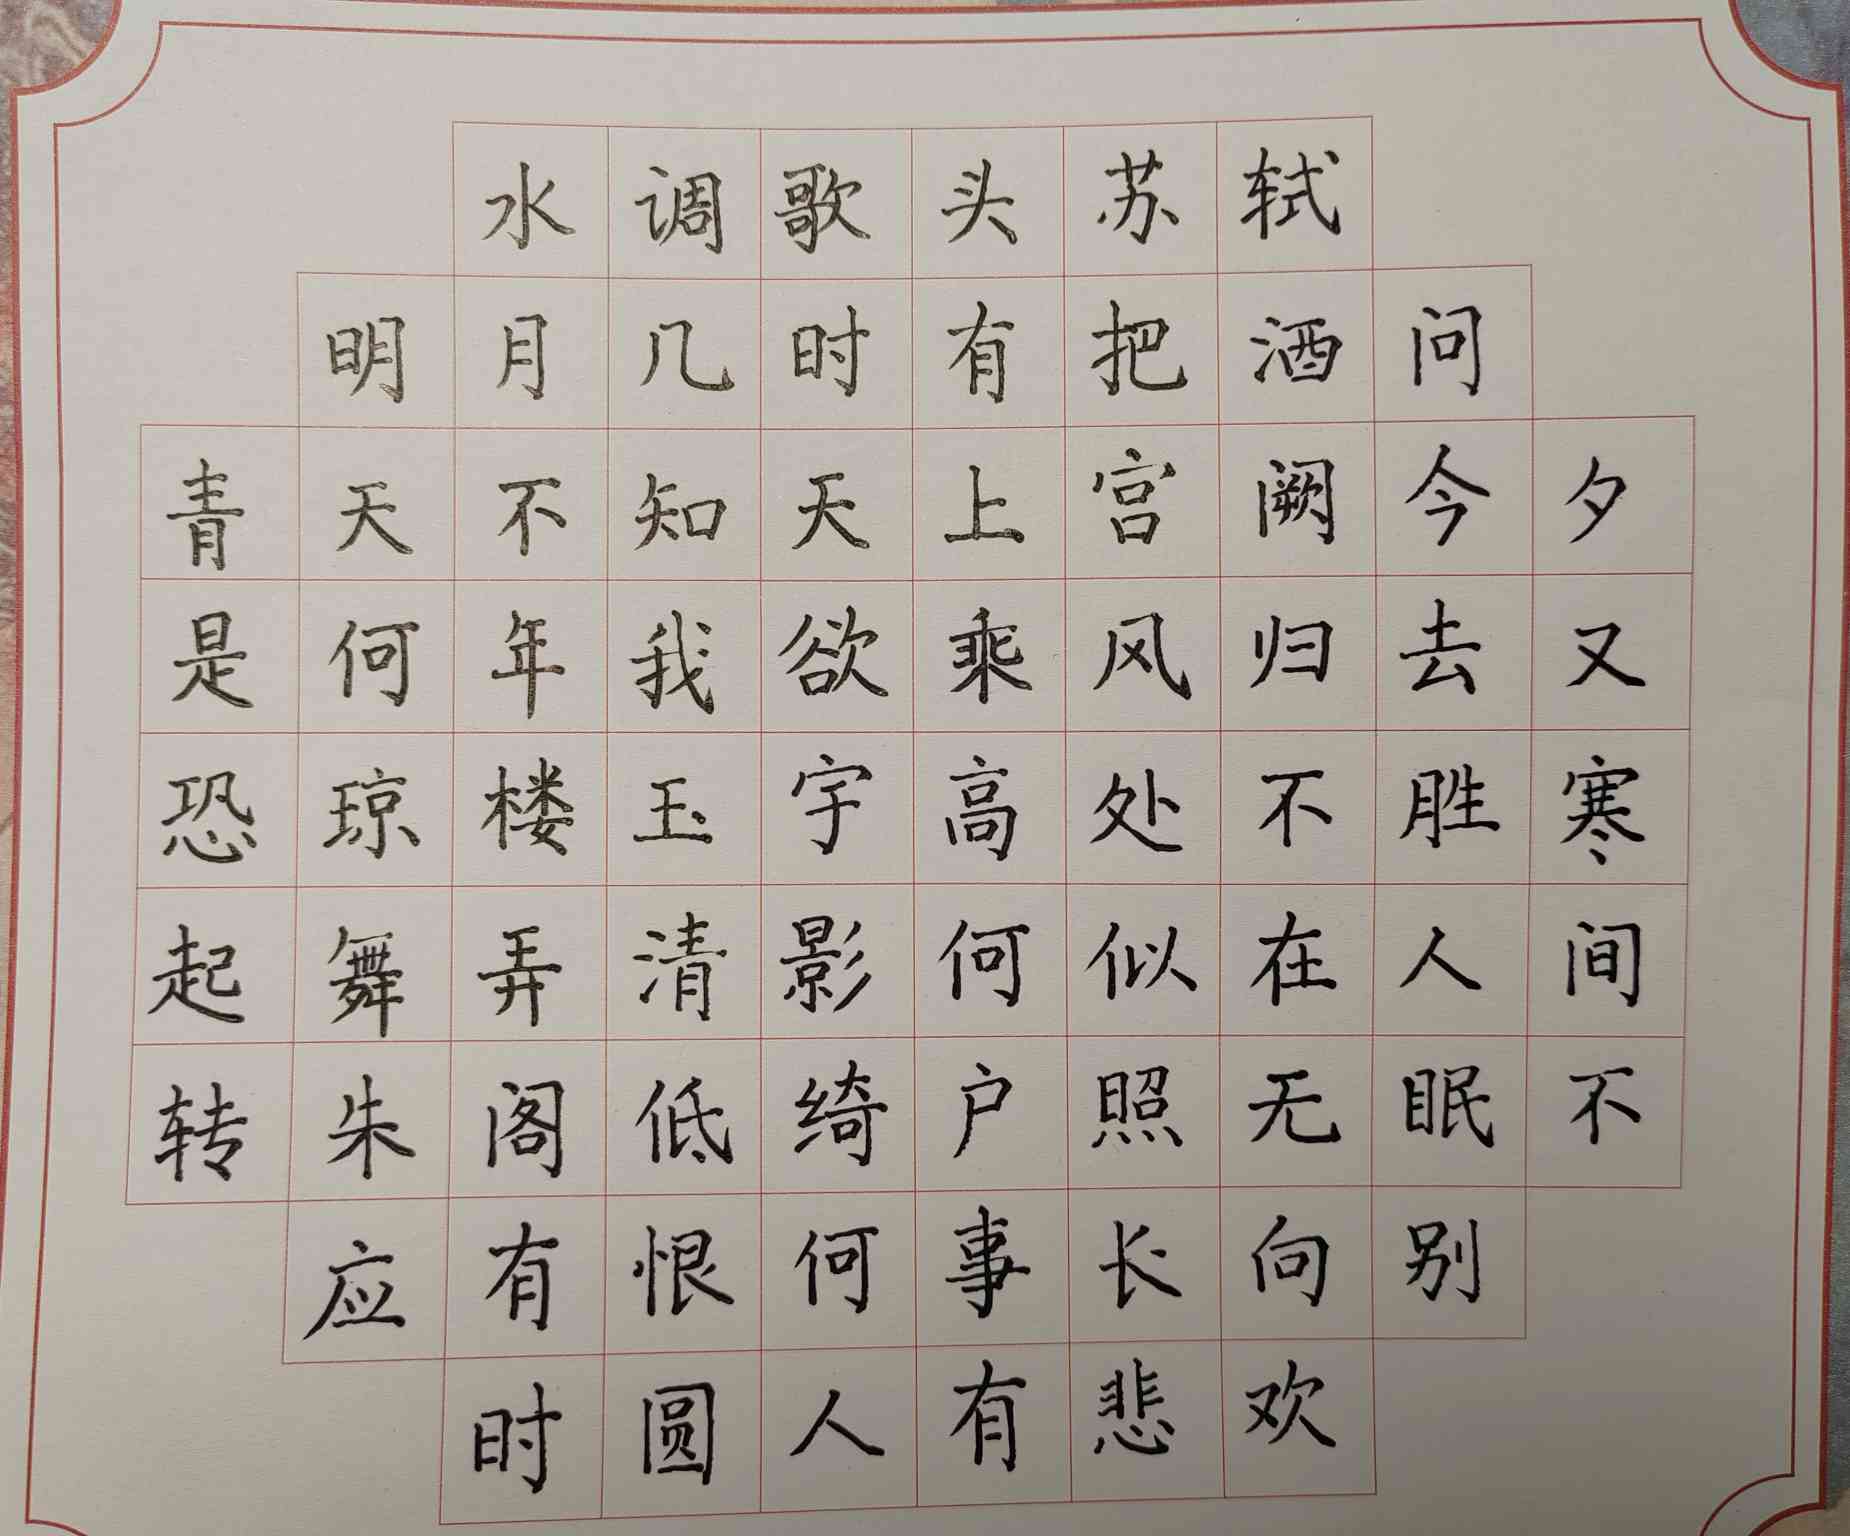 水调歌头苏轼
明月几时有把酒问
青天不知天上宫阙今夕
是何年我欲乘风归去又
恐琼楼玉宇高处不胜寒
起舞弄清影何似在人间
转朱阁低绮户照无眠不
应有恨何事长向别
时圆人有悲欢